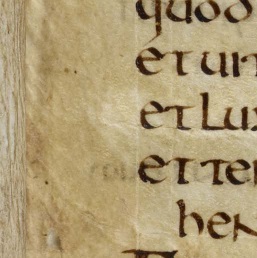 quod
et uit
et lux
et te
hen